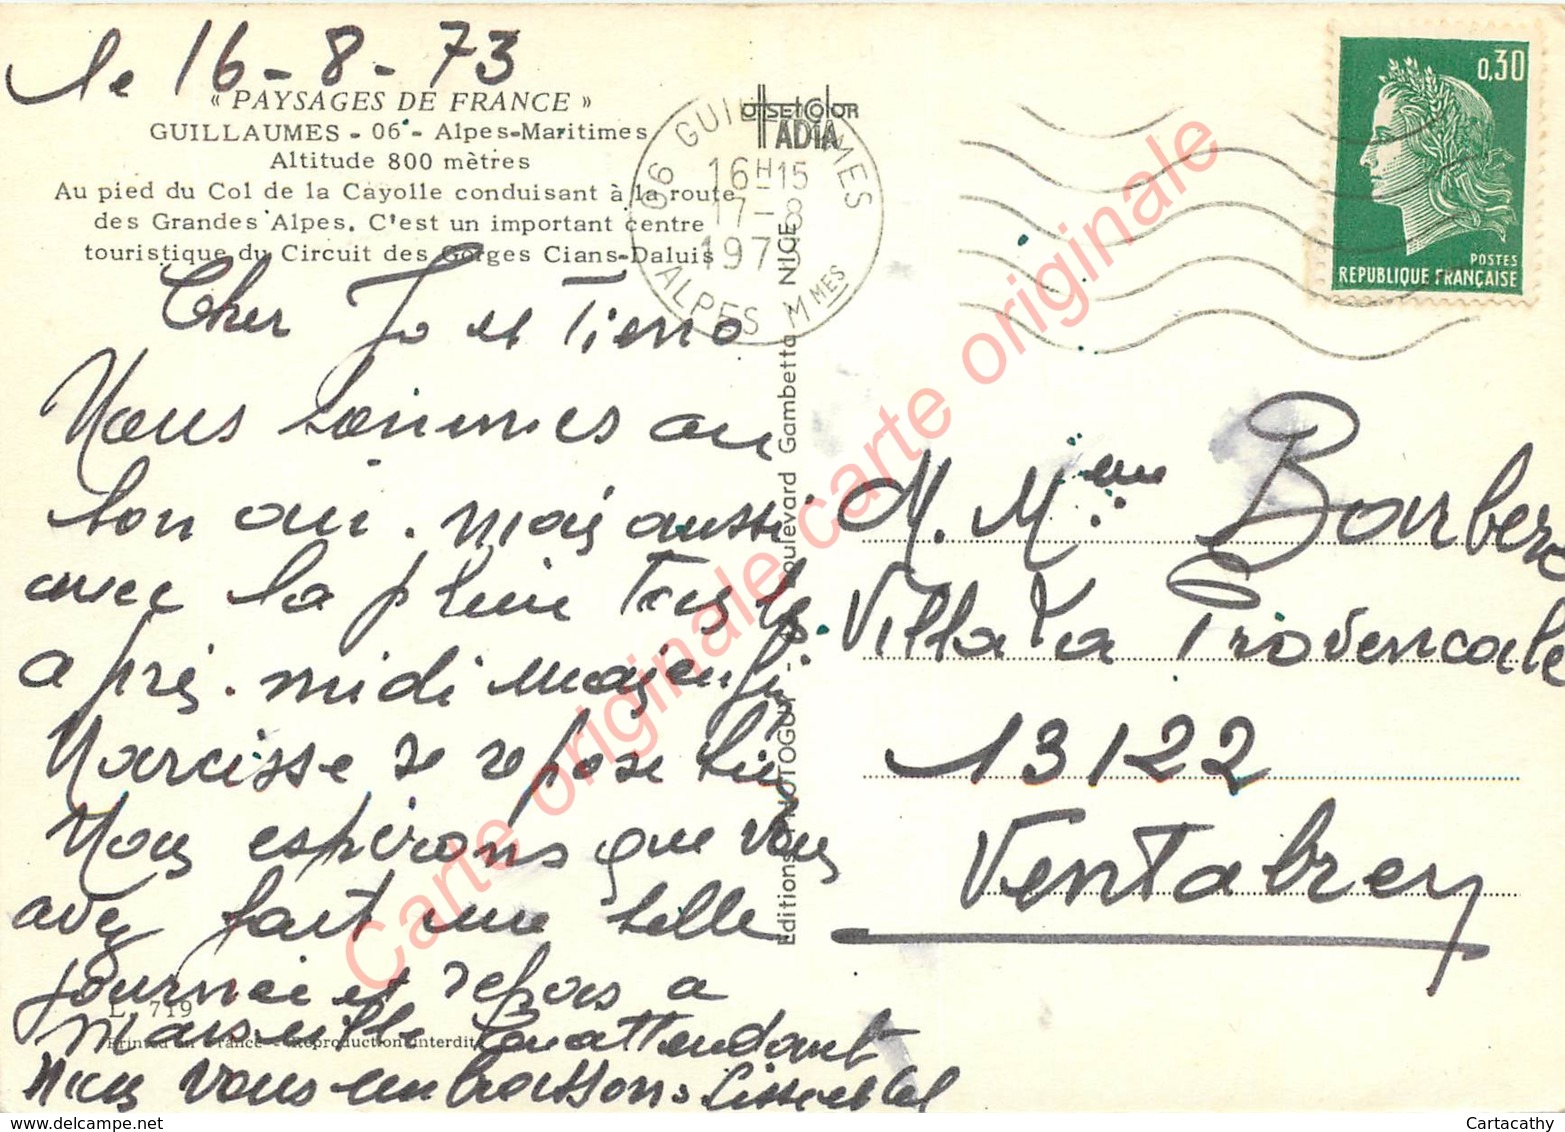 le 16-8-73
« PAYSAGES DE FRANCE »
GUILLAUMES - 06 - Alpes-Maritimes
Altitude 800 mètres
Au pied du Col de la Cayolle conduisant à la route
des Grandes Alpes. C'est un important centre
touristique du Circuit des Gorges Cians-Daluis
Cher Jo et Tieno
Nous sommes au
bon air. mais aussi
avec la pluie Tous les
après. midi mais enfin
Narcisse se repose bien
Nous espérons que vous
avez fait une belle
journée et repos a
Marseille En attendant
Nous vous embrassons
L. 719
Printed in France - Reproduction interdite
OFFSET COLOR
ADIA
06 GUILLAUMES
16H15
17-8
1973
ALPES MMES
Editions PHOTOGUY - Boulevard Gambetta NICE
0,30
POSTES
REPUBLIQUE FRANÇAISE
M. Mme Barbero
Villa La Provencale
13122
Ventabren
Carte originale carte originale
Cartacathy